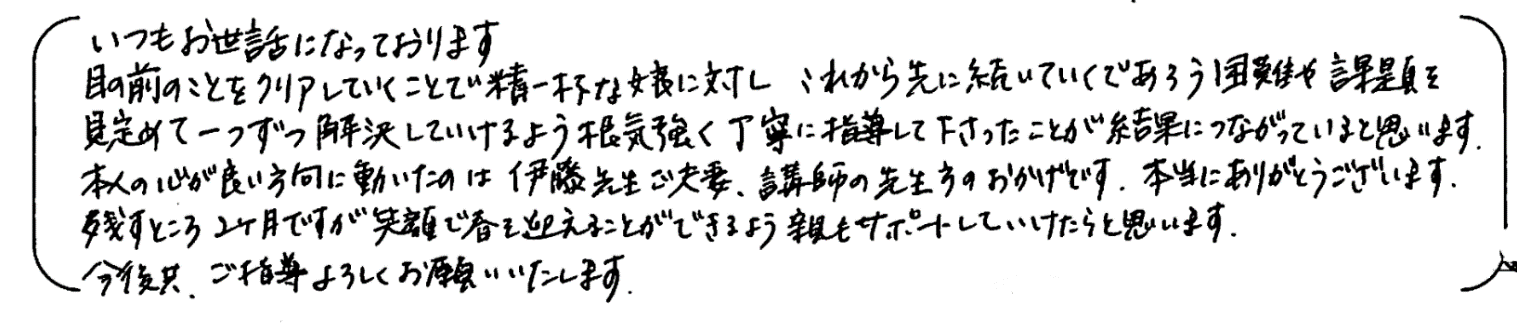 いつもお世話になっております
目の前のことをクリアしていくことで精一杯な娘に対し これから先に続いていくであろう困難や課題を
見定めて一つずつ解決していけるよう根気強く丁寧に指導して下さったことが結果につながっていると思います.
本人の心が良い方向に動いたのは伊藤先生ご夫妻、講師の先生方のおかげです. 本当にありがとうございます.
残すところ2ヶ月ですが笑顔で春を迎えることができるよう親もサポートしていけたらと思います.
今後共、ご指導よろしくお願いいたします.